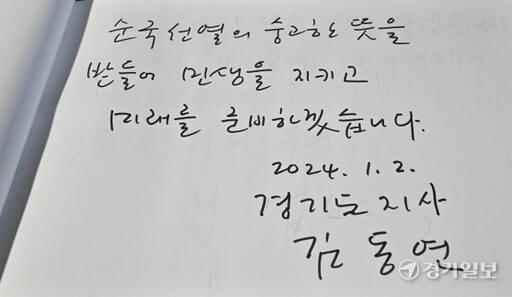 순국선열의 숭고한 뜻을
받들어 민생을 지키고
미래를 준비하겠습니다.
2024. 1. 2.
경기도지사
김동연
경기일보